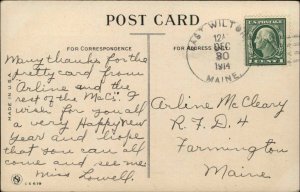 POST CARD
FOR CORRESPONDENCE
FOR ADDRESS
EAST WILTON
DEC
30
1914
MAINE
Many thanks for the
pretty card from
Arline and the
rest of the McC's. I
wish for you all
a very Happy New
Year and hope
that you can all
come and see me.
Miss Lowell.
Arline McCleary
R. F. D. 4
Farmington
Maine